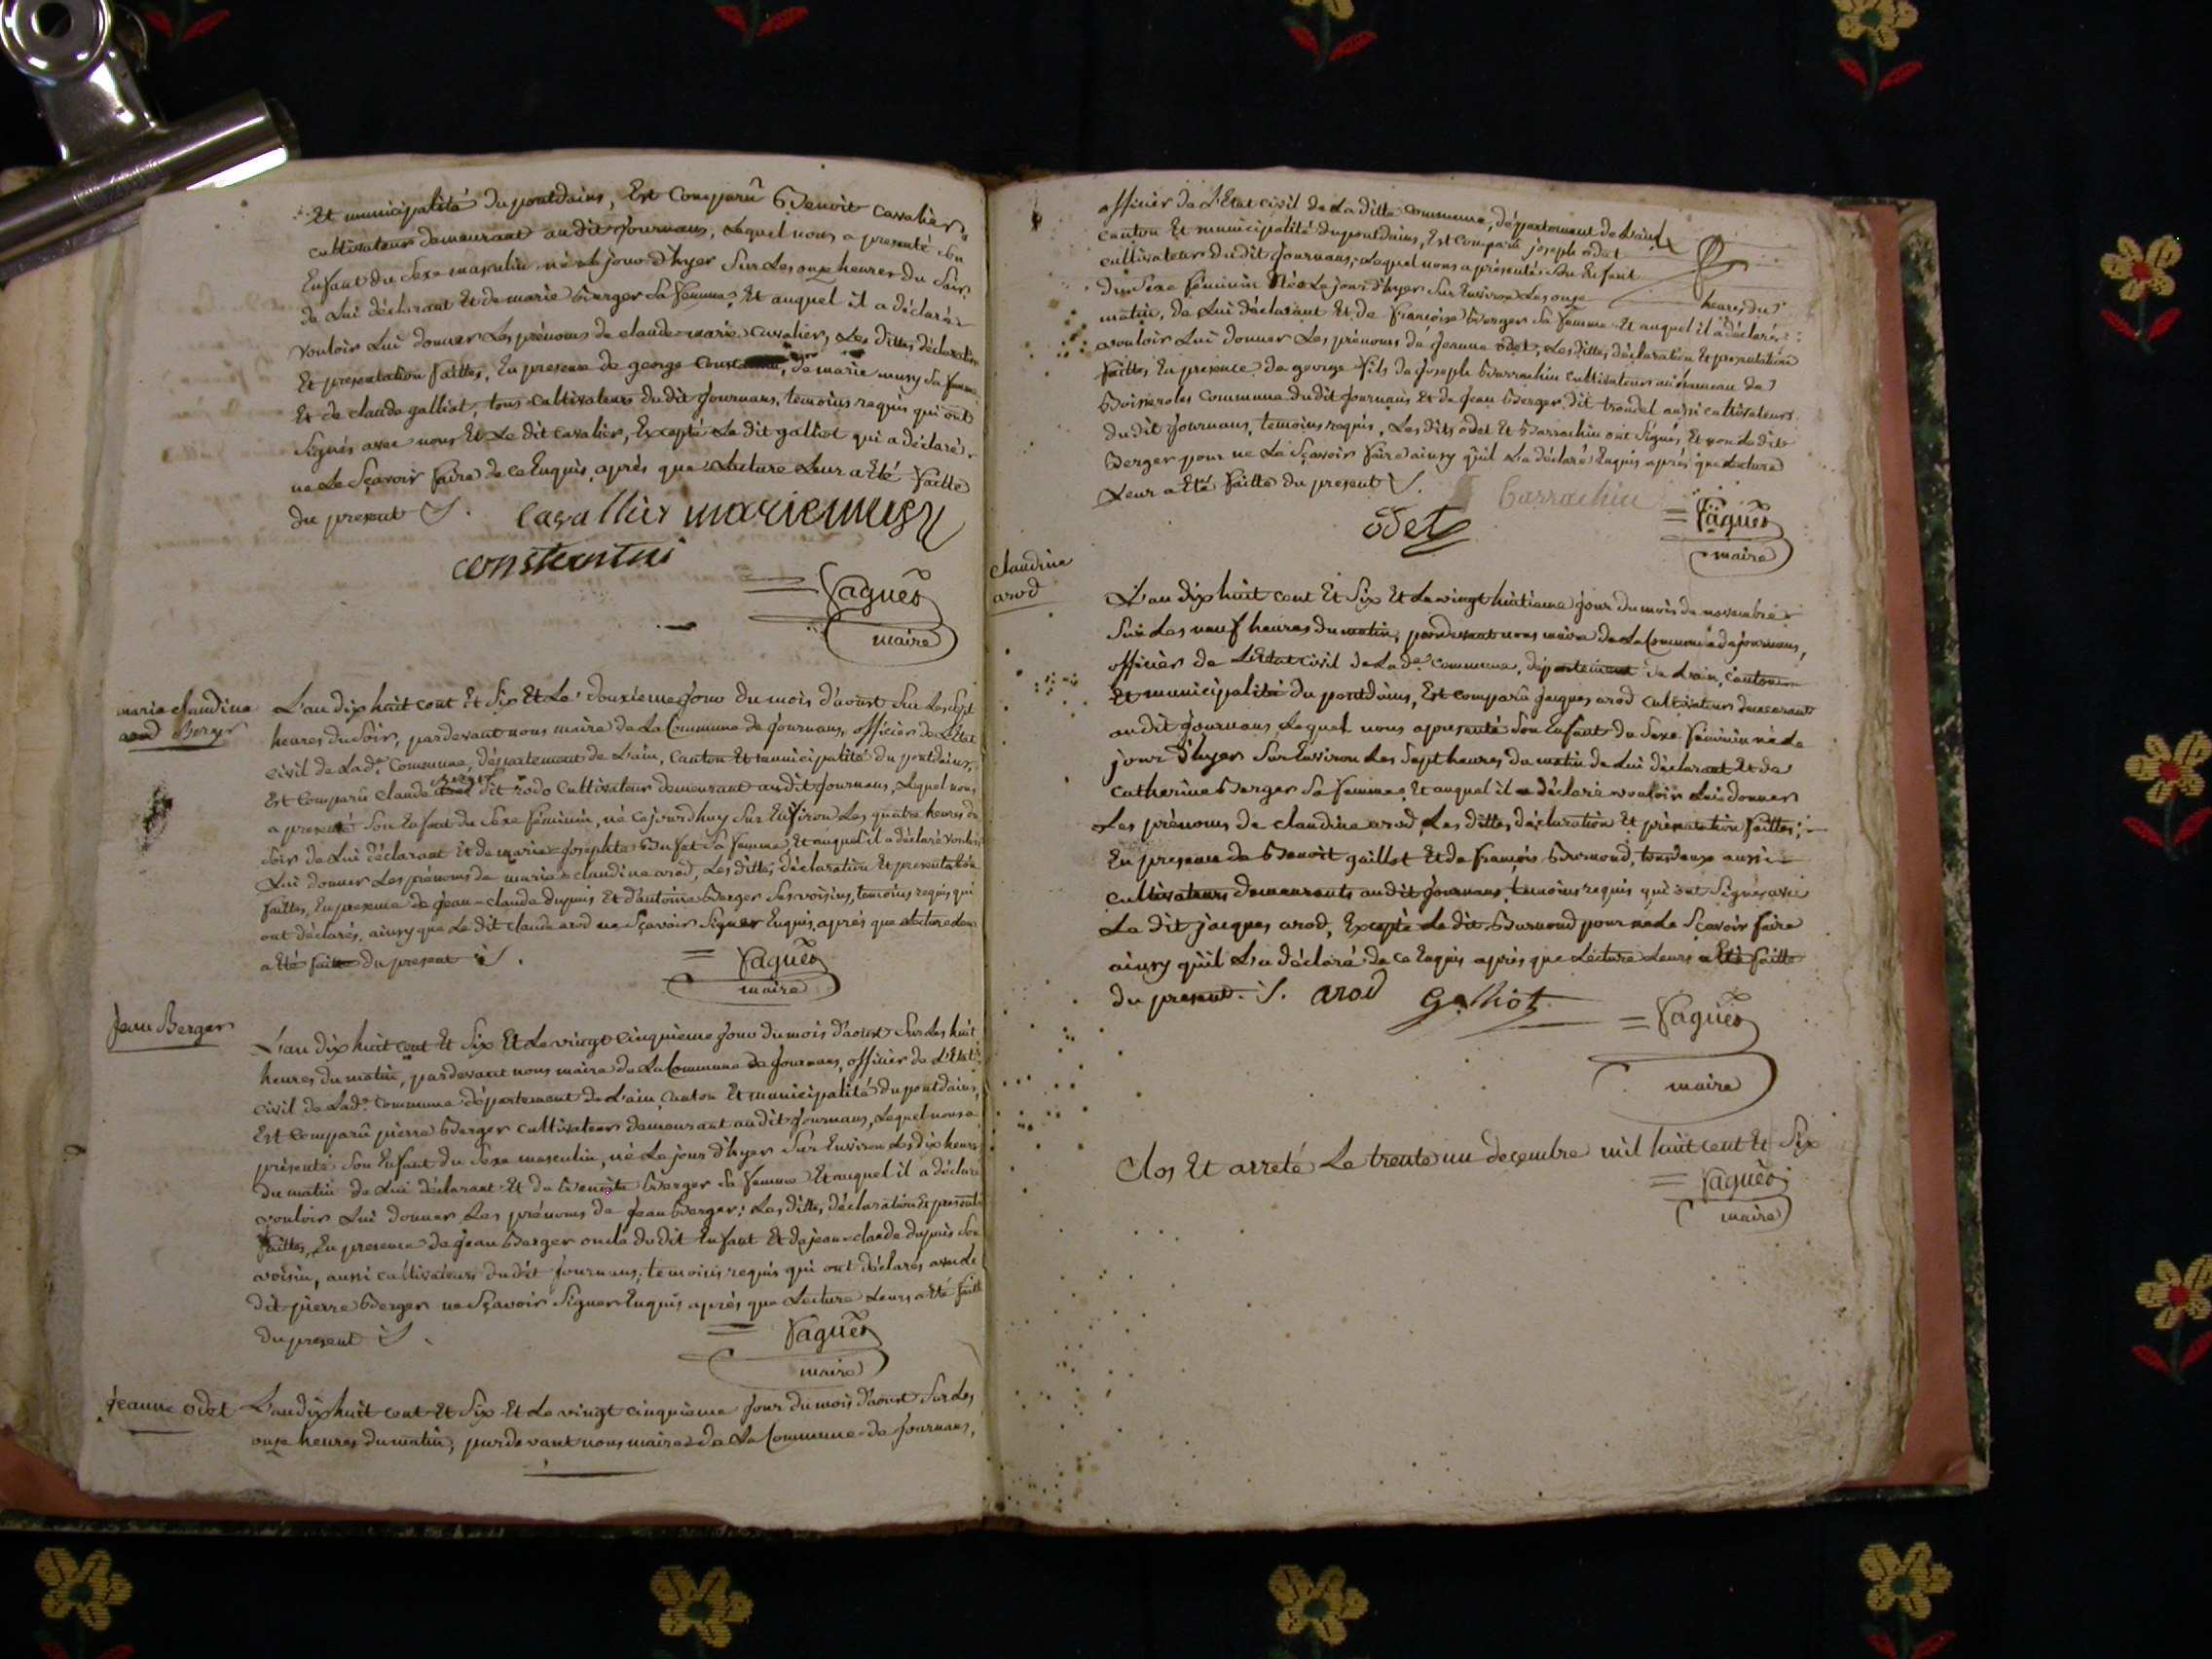 Et municipalité du pontdains, Est Comparû Benoit Cavalier
cultivateur demeurant au dit Journans, Lequel nous a presenté Son
Enfant du Sexe masculin né le jour d'hyer Sur Les onze heures du Soir
de Lui déclarant Et de marie Berger Sa femme, Et auquel il a déclaré
vouloir Lui donner Les prénoms de claude-marie Cavalier, Les dittes déclaration
Et presentation faittes, En presence de george de marie musy Sa femme
Et de claude galliot, tous cultivateurs du dit Journans, temoins requis qui ont
Signés avec nous Et Le dit Cavalier, Excepté Le dit galliot qui a déclaré
ne Le Sçavoir faire de ce Enquis, après que Lecture Leur a Eté faitte
du present
Cavallier marie musy
constantin
Vagues
maire
marie claudine
arod Berger
L'an dix huit cent Et Six Et Le douxieme jour du mois d'aoust Sur Les Sept
heures du Soir, pardevant nous maire de La Commune de Journans, officier de L'Etat
civil de Lad.e Commune, département de L'ain, Canton Et municipalité du pontdains,
Berger
Est Comparû Claude arod dit rodo Cultivateur demeurant au dit Journans, Lequel nous
a presenté Son Enfant du Sexe féminin, né cejourd'huy Sur Environ Les quatre heures du
Soir de Lui déclarant Et de marie-Josephte Sa femme, Et auquel il a déclaré vouloir
Lui donner Les prénoms de marie claudine arod, Les dittes déclaration Et presentation
faittes, En presence de Jean-claude dupuis Et d'antoine Berger Ses voisins, temoins requis qui
ont déclarés, ainsy que Le dit claude arod ne Sçavoir Signer Enquis, après que Lecture Leur
a Eté faitte du present
Vagues
maire
Jean Berger
L'an dix huit cent Et Six Et Le vingt cinquieme jour du mois d'aoust Sur Les huit
heures du matin, pardevant nous maire de La Commune de Journans, officier de L'Etat
civil de Lad.e Commune département de L'ain, Canton Et municipalité du pontdains,
Est Comparû pierre Berger cultivateur demeurant au dit Journans, Lequel nous a
présenté Son Enfant du Sexe masculin, né Le jour d'hyer Sur Environ Les dix heures
du matin de Lui déclarant Et de Benoite Berger Sa femme Et auquel il a déclaré
vouloir Lui donner Les prénoms de Jean Berger; Les dittes déclaration Et presentation
faittes, En presence de Jean Berger oncle du dit Enfant Et de jean-claude dupuis Son
voisin, aussi cultivateurs du dit Journans; temoins requis qui ont déclarés avec Le
dit pierre Berger ne Sçavoir Signer Enquis après que Lecture Leurs a Eté faitte
du present
Vagues
maire
Jeanne odet
L'an dix huit cent Et Six Et Le vingt cinquieme jour du mois d'aoust Sur Les
onze heures du matin, pardevant nous maire de La Commune de Journans,
officier de L'Etat civil de La ditte Commune, département de L'ain
Canton Et municipalité du pontdains, Est Comparû joseph odet
cultivateur du dit Journans, Lequel nous a présenté Son Enfant
du Sexe féminin Née Le jour d'hyer Sur Environ Les onze heures du
matin, de Lui déclarant Et de françoise Berger Sa femme Et auquel il a déclaré
vouloir Lui donner Les prénoms de Jeanne odet, Les dittes déclaration Et presentation
faittes En presence de george fils de Joseph Barrachin cultivateur au hameau de
Boiseroles Commune du dit Journans Et de Jean Berger dit trondel aussi cultivateurs
du dit Journans, temoins requis, Les dits odet Et Barrachin ont Signés Et non Le dit
Berger pour ne Le Sçavoir faire ainsy qu'il L'a déclaré Enquis après que Lecture
Leur a Eté faitte du present
odet
barrachin
Vagues
maire
claudine
arod
L'an dix huit cent Et Six Et Le vingt huitieme jour du mois de novembre
Sur Les neuf heures du matin, pardevant nous maire de La Commune de Journans,
officier de L'Etat civil de La d.e Commune, département de L'ain, Canton
Et municipalité du pontdains, Est comparû Jacques arod cultivateur demeurant
au dit Journans Lequel nous a presenté Son Enfant du Sexe féminin né Le
jour d'hyer Sur Environ Les Sept heures du matin de Lui déclarant Et de
Catherine Berger Sa femme, Et auquel il a déclaré vouloir Lui donner
Les prénoms de claudine arod, Les dittes déclaration Et présentation faittes;
En presence de Benoit galliot Et de françois Burnond, tous deux aussi
Cultivateurs demeurants au dit Journans temoins requis qui ont Signés avec
Le dit jacques arod, Excepté Le dit Burnond pour ne Le Sçavoir faire
ainsy qu'il L'a déclaré de ce Enquis après que Lecture Leurs a Eté faitte
du present. arod Galliot
Vagues
maire
Clos Et arreté Le trente un decembre mil huit cent Et Six
Vagues
maire